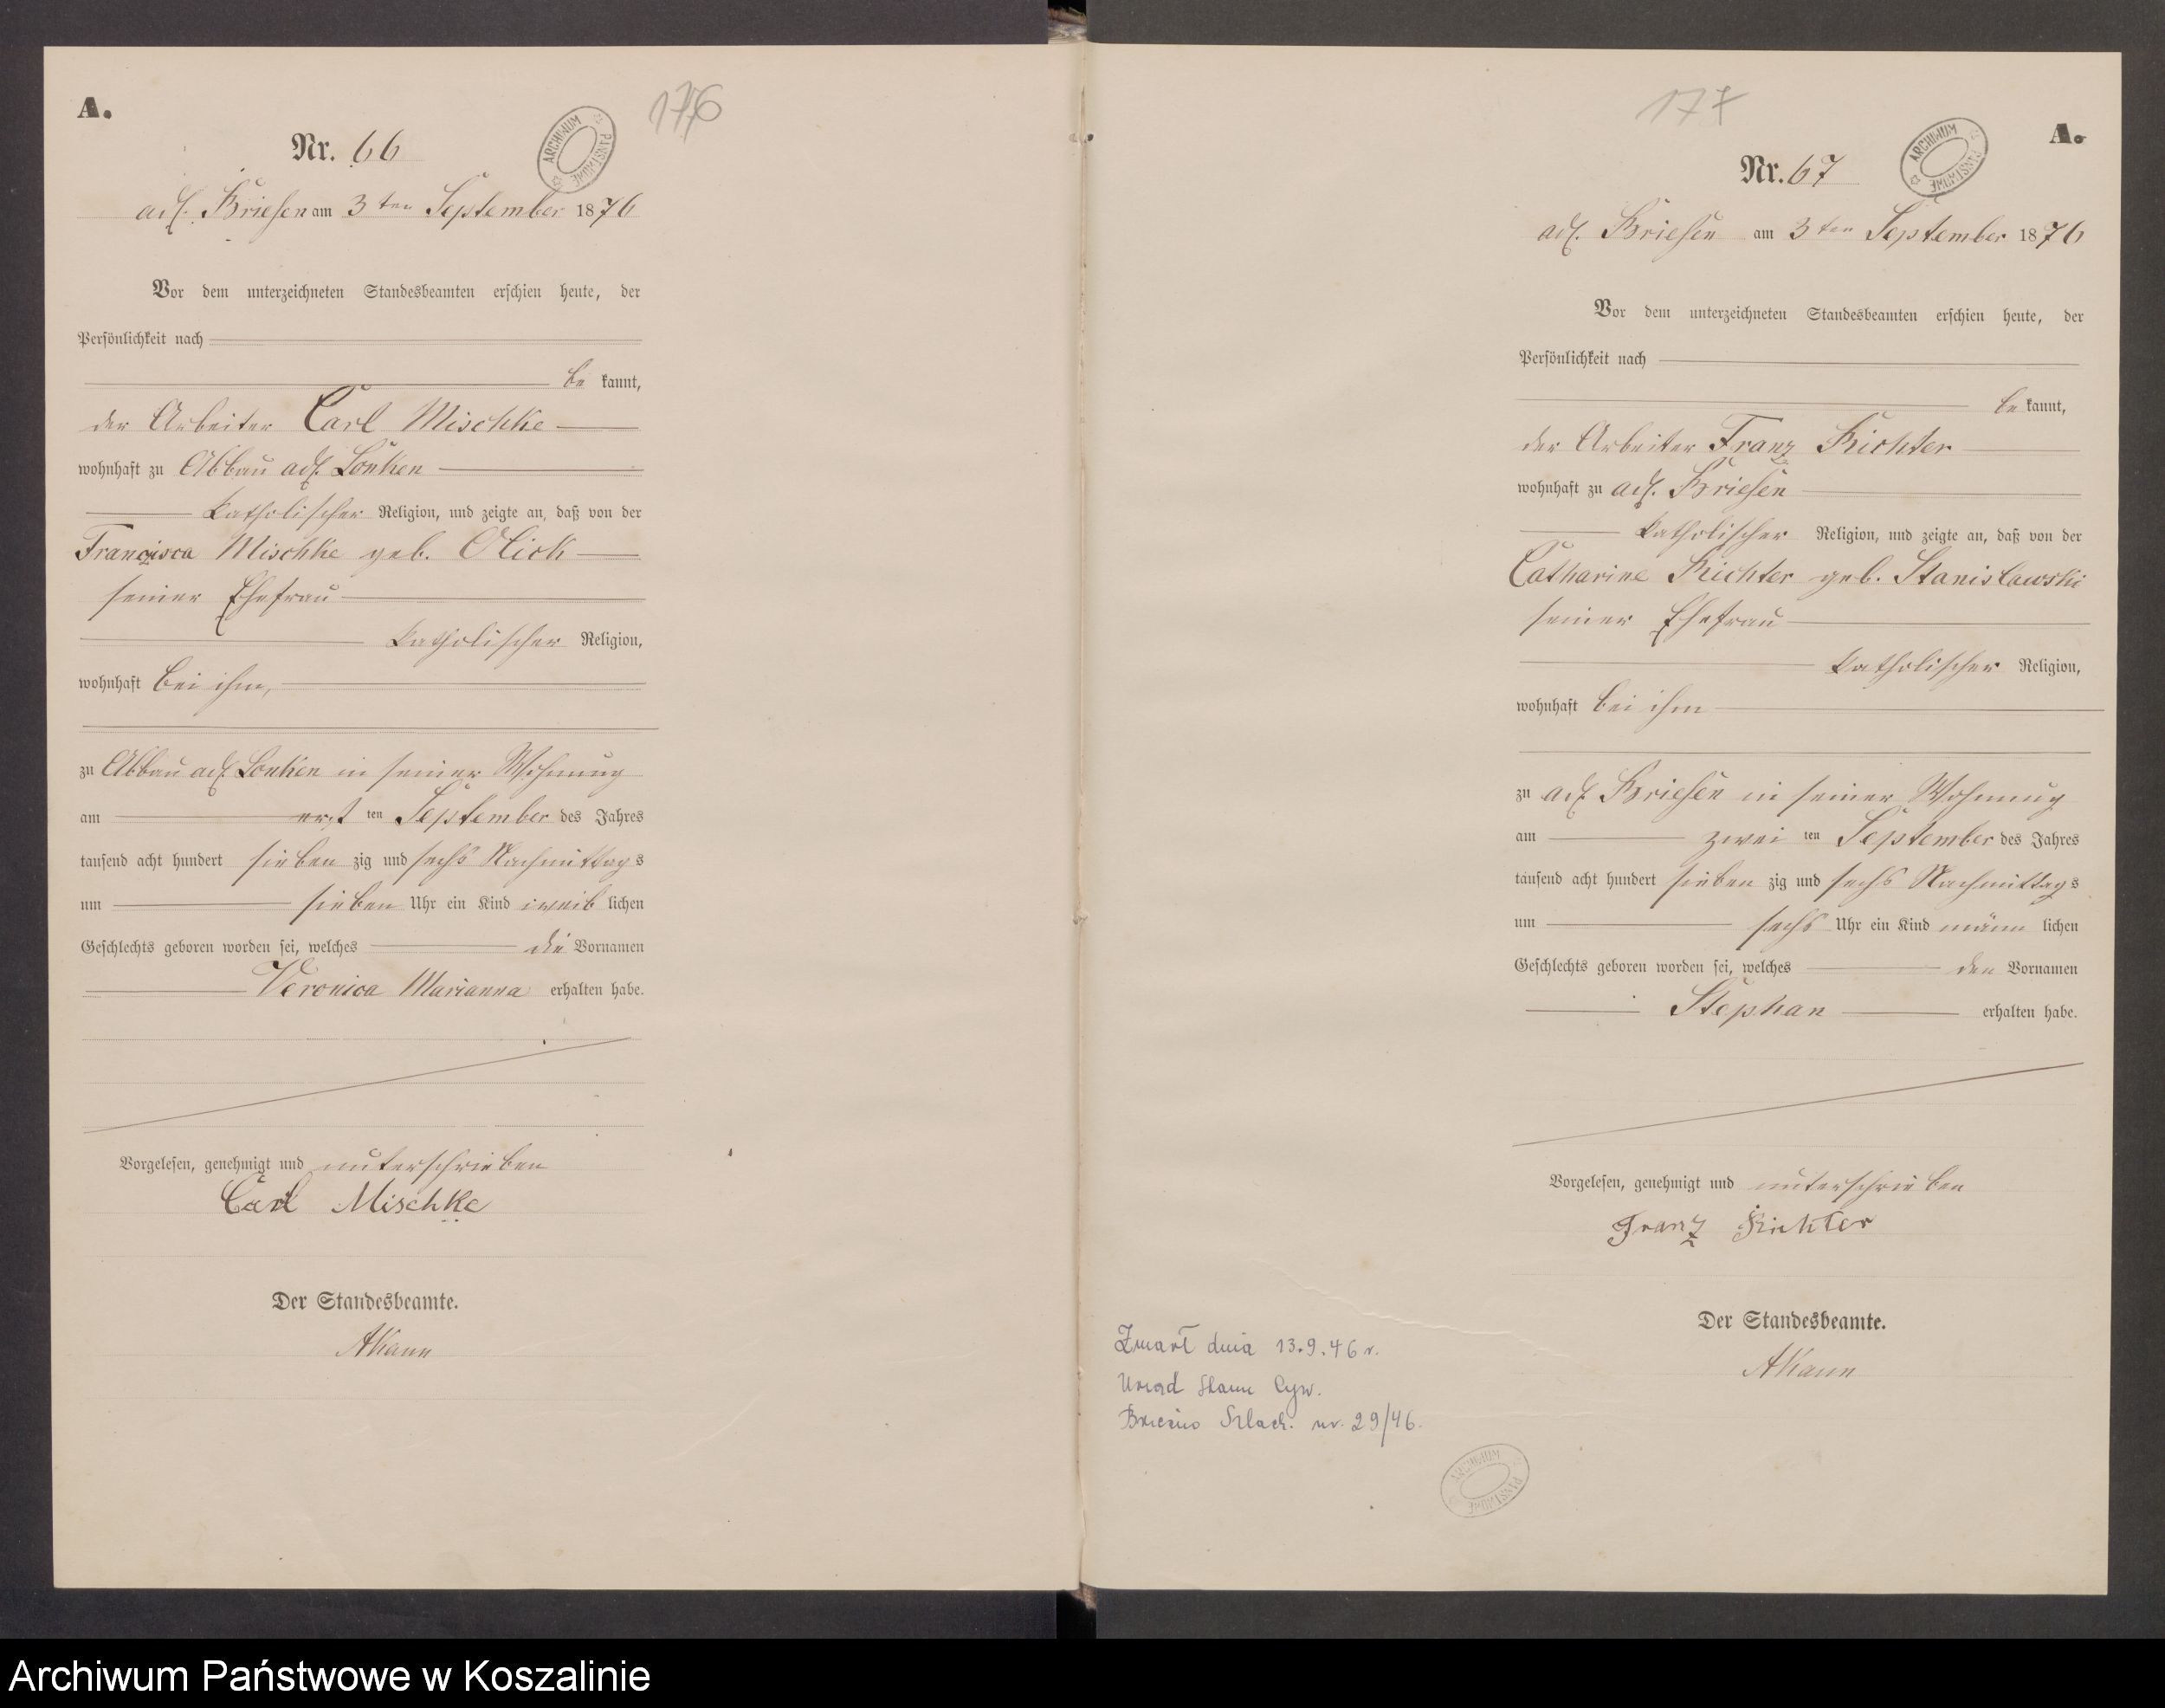 A.
176
Nr. 66
ARCHIWUM PAŃSTWOWE
adl. Briesen am 3ten September 1876
Vor dem unterzeichneten Standesbeamten erschien heute, der
Persönlichkeit nach
be kannt,
der Arbeiter Carl Mischke
wohnhaft zu Abbau adl. Lonken
katholischer Religion, und zeigte an, daß von der
Francisca Mischke geb. Olick
seiner Ehefrau
katholischer Religion,
wohnhaft bei ihm,
zu Abbau adl. Lonken in seiner Wohnung
am ersten September des Jahres
tausend acht hundert sieben zig und sechs Nachmittags
um sieben Uhr ein Kind weib lichen
Geschlechts geboren worden sei, welches die Vornamen
Veronica Marianna erhalten habe.
Vorgelesen, genehmigt und unterschrieben
Carl Mischke
Der Standesbeamte.
177
A.
Nr. 67
ARCHIWUM PAŃSTWOWE
adl. Briesen am 3ten September 1876
Vor dem unterzeichneten Standesbeamten erschien heute, der
Persönlichkeit nach
be kannt,
der Arbeiter Franz Richter
wohnhaft zu adl. Briesen
katholischer Religion, und zeigte an, daß von der
Catharine Richter geb. Stanislawski
seiner Ehefrau
katholischer Religion,
wohnhaft bei ihm
zu adl. Briesen in seiner Wohnung
am zwei ten September des Jahres
tausend acht hundert sieben zig und sechs Nachmittags
um sechs Uhr ein Kind männ lichen
Geschlechts geboren worden sei, welches den Vornamen
Stephan erhalten habe.
Vorgelesen, genehmigt und unterschrieben
Franz Richter
Der Standesbeamte.
Zmarł dnia 13.9.46 r.
Urząd Stanu Cyw.
Brzeźno Szlach. nr. 29/46.
ARCHIWUM PAŃSTWOWE
Archiwum Państwowe w Koszalinie